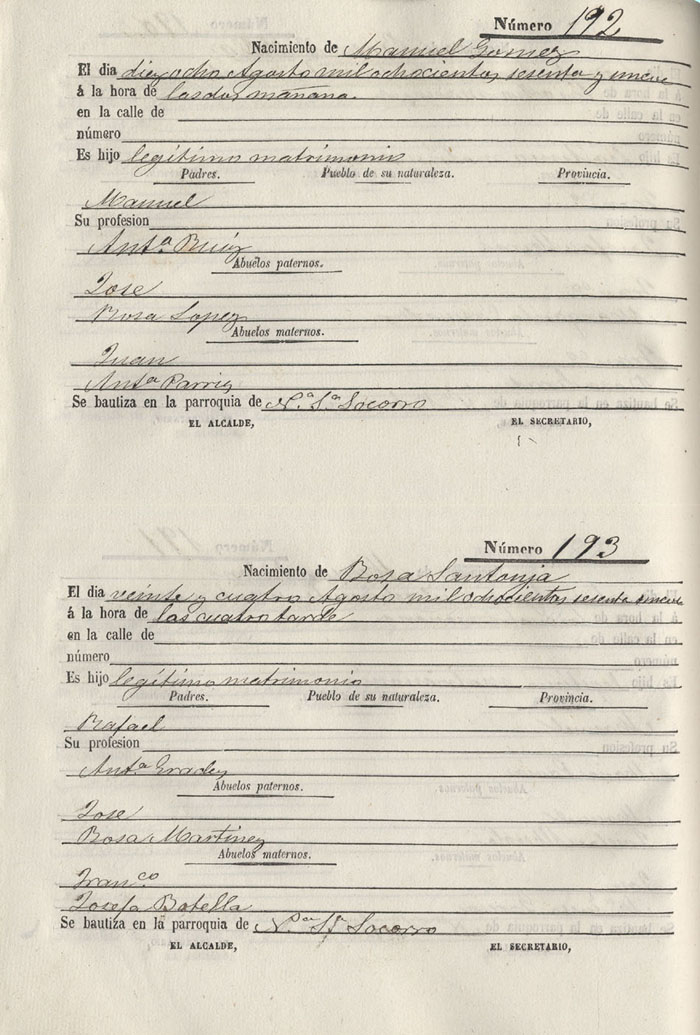 Número 192
Nacimiento de Manuel Gomez
El dia diez ocho Agosto mil ochocientos sesenta y nueve
á la hora de las dos mañana.
en la calle de
número
Es hijo legítimo matrimonio
Padres. Pueblo de su naturaleza. Provincia.
Manuel
Su profesion
Antª Ruiz
Abuelos paternos.
Jose
Rosa Lopez
Abuelos maternos.
Juan
Antª
Se bautiza en la parroquia de Nª Sª Socorro
EL ALCALDE, EL SECRETARIO,
Número 193
Nacimiento de Rosa Santonja
El dia veinte y cuatro Agosto mil ochocientos sesenta nueve
á la hora de las cuatro tarde
en la calle de
número
Es hijo legítimo matrimonio
Padres. Pueblo de su naturaleza. Provincia.
Rafael
Su profesion
Antª
Abuelos paternos.
Jose
Rosa Martinez
Abuelos maternos.
Franco
Josefa Botella
Se bautiza en la parroquia de Nª Sª Socorro
EL ALCALDE, EL SECRETARIO,